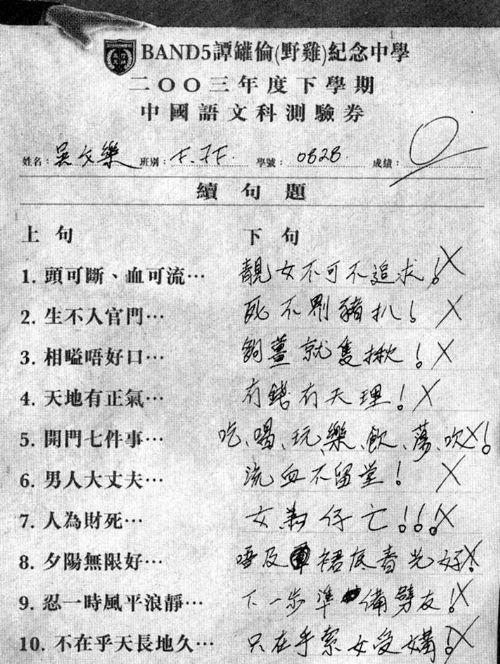 BAND5譚罐倫(野雞)紀念中學
二OO三年度下學期
中國語文科測驗券
姓名: 吳文樂 班別: 學號: 0828. 成績: 0
續句題
上句 下句
1. 頭可斷、血可流… 靚女不可不追求! X
2. 生不入官門… 死不劏豬扒! X
3. 相嗌唔好口… 夠薑就隻揪! X
4. 天地有正氣… 有錢有天理! X
5. 開門七件事… 吃、喝、玩、樂、飲、蕩、吹! X
6. 男人大丈夫… 流血不留堂! X
7. 人為財死… 女為仔亡!!! X
8. 夕陽無限好… 唔及裙底春光好! X
9. 忍一時風平浪靜… 下一步準備劈友! X
10. 不在乎天長地久… 只在乎索女受媾! X